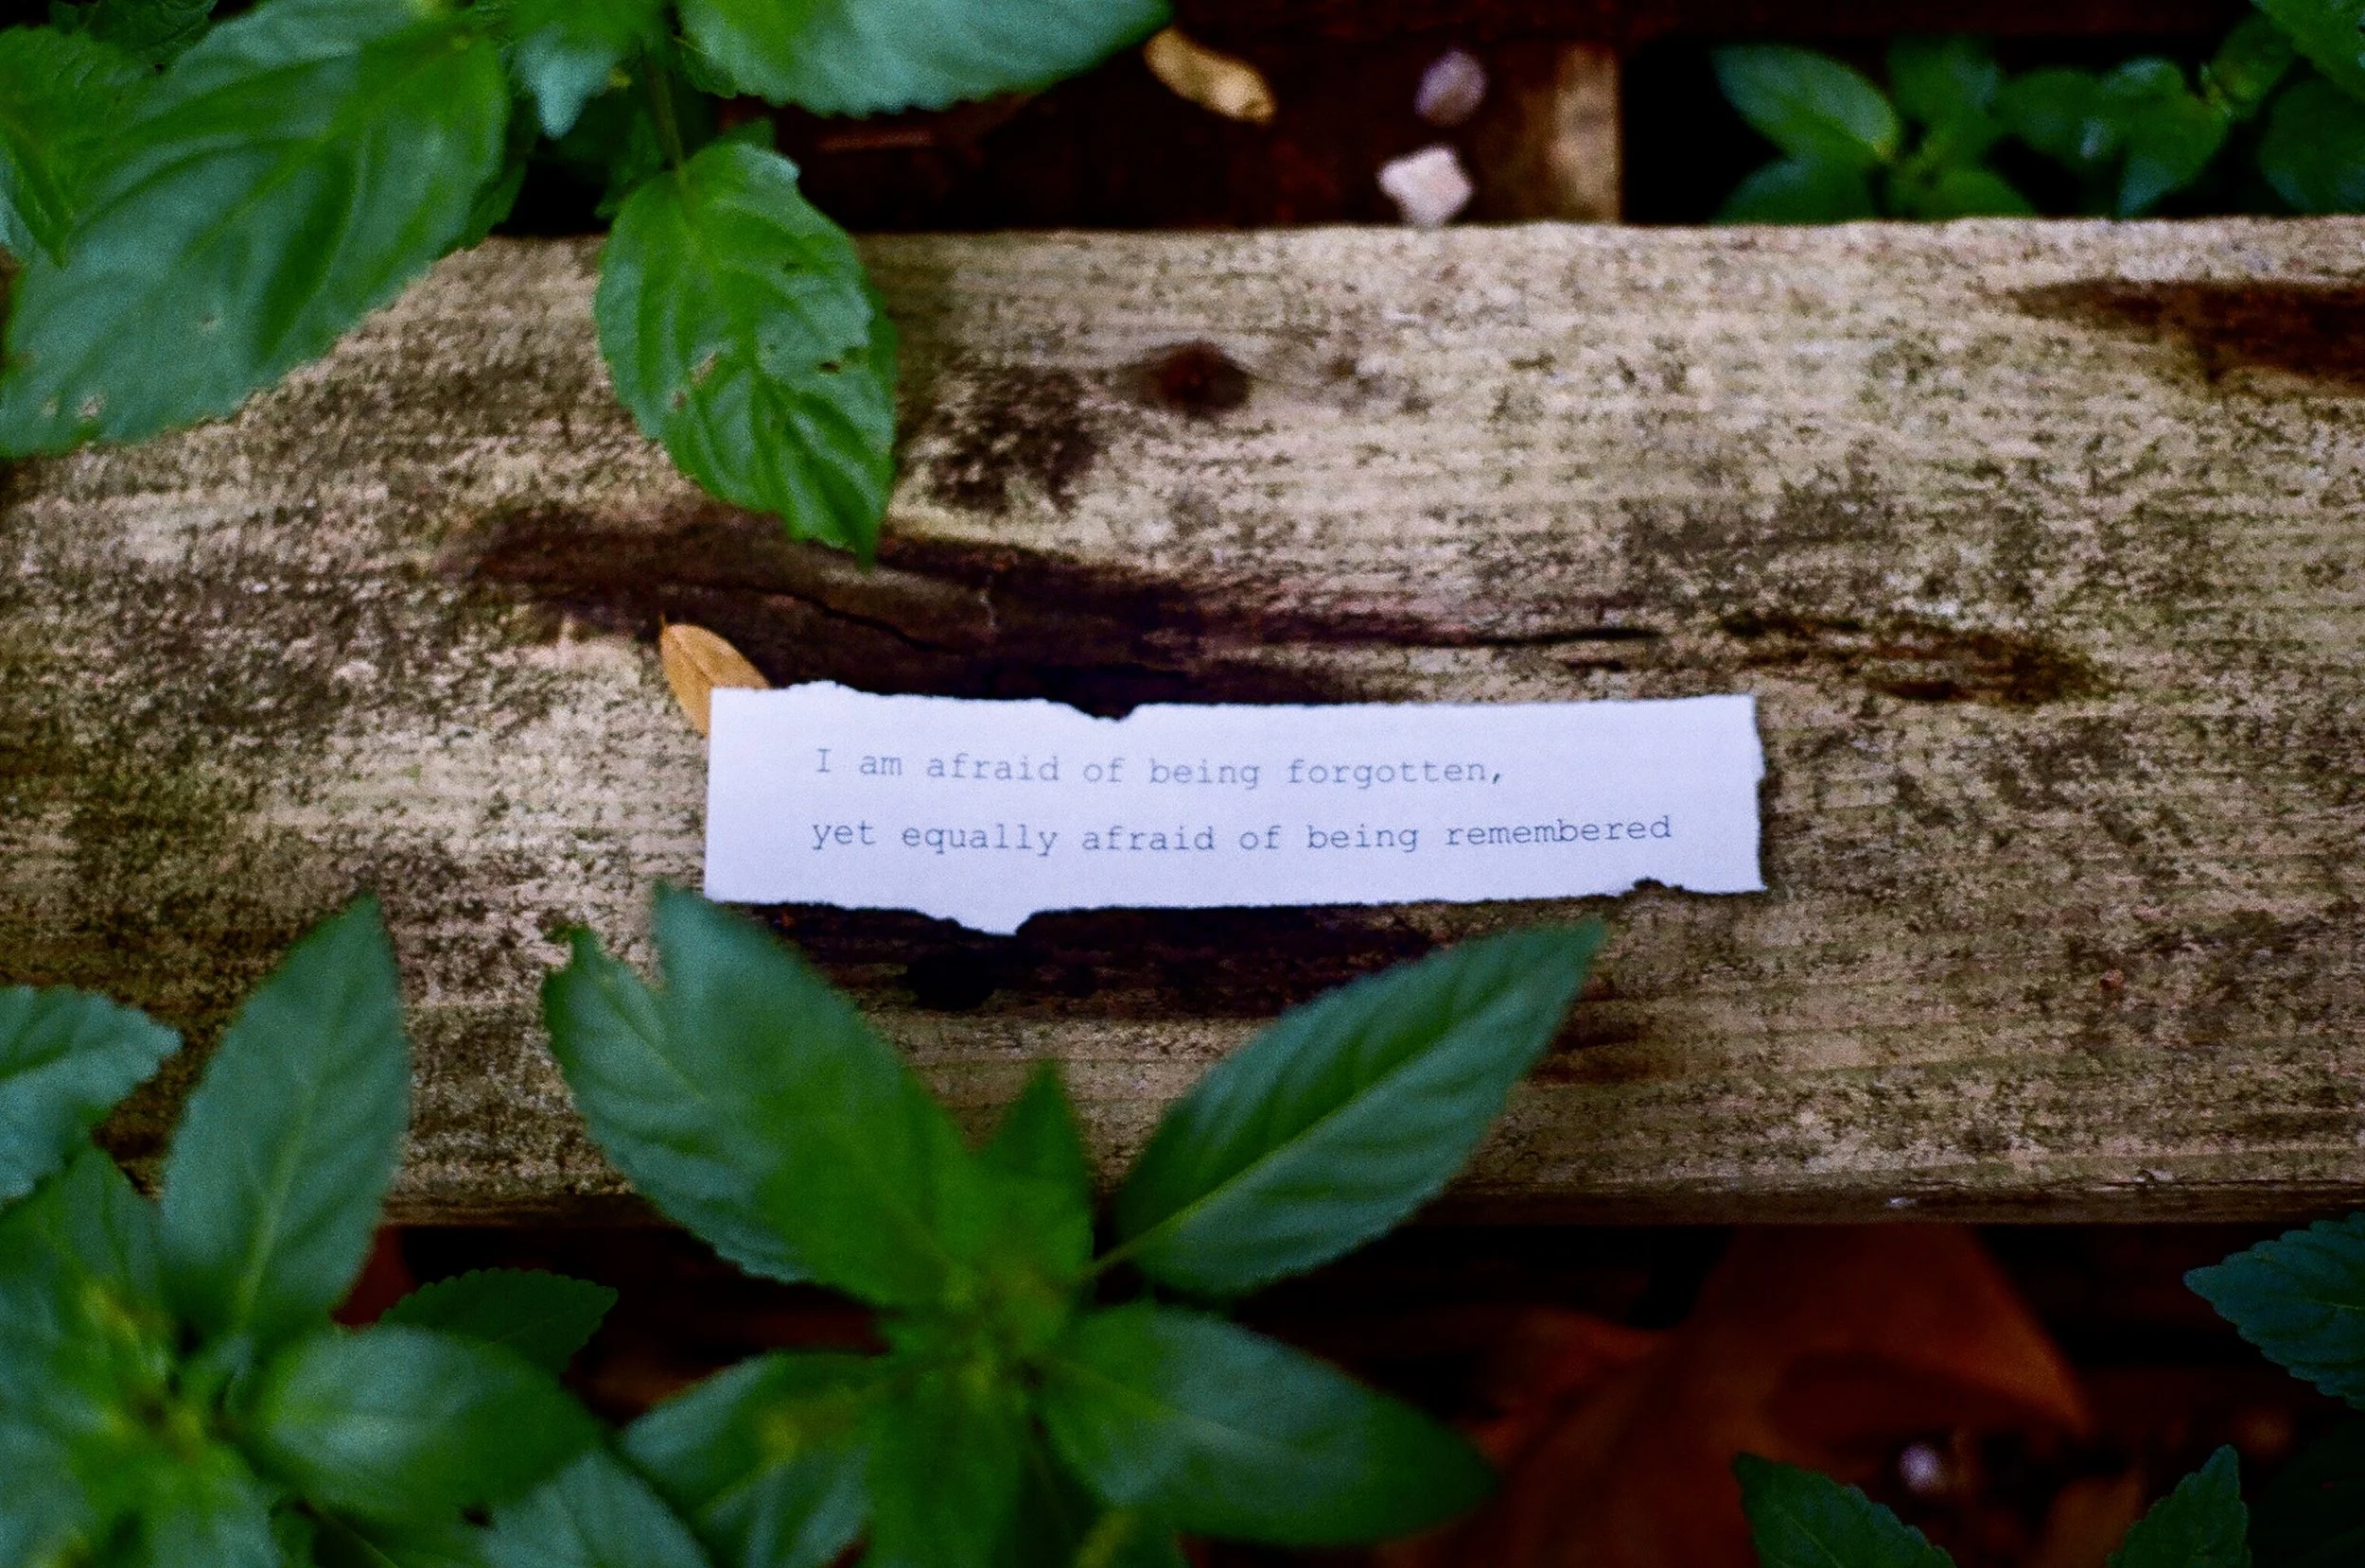 I am afraid of being forgotten,
yet equally afraid of being remembered